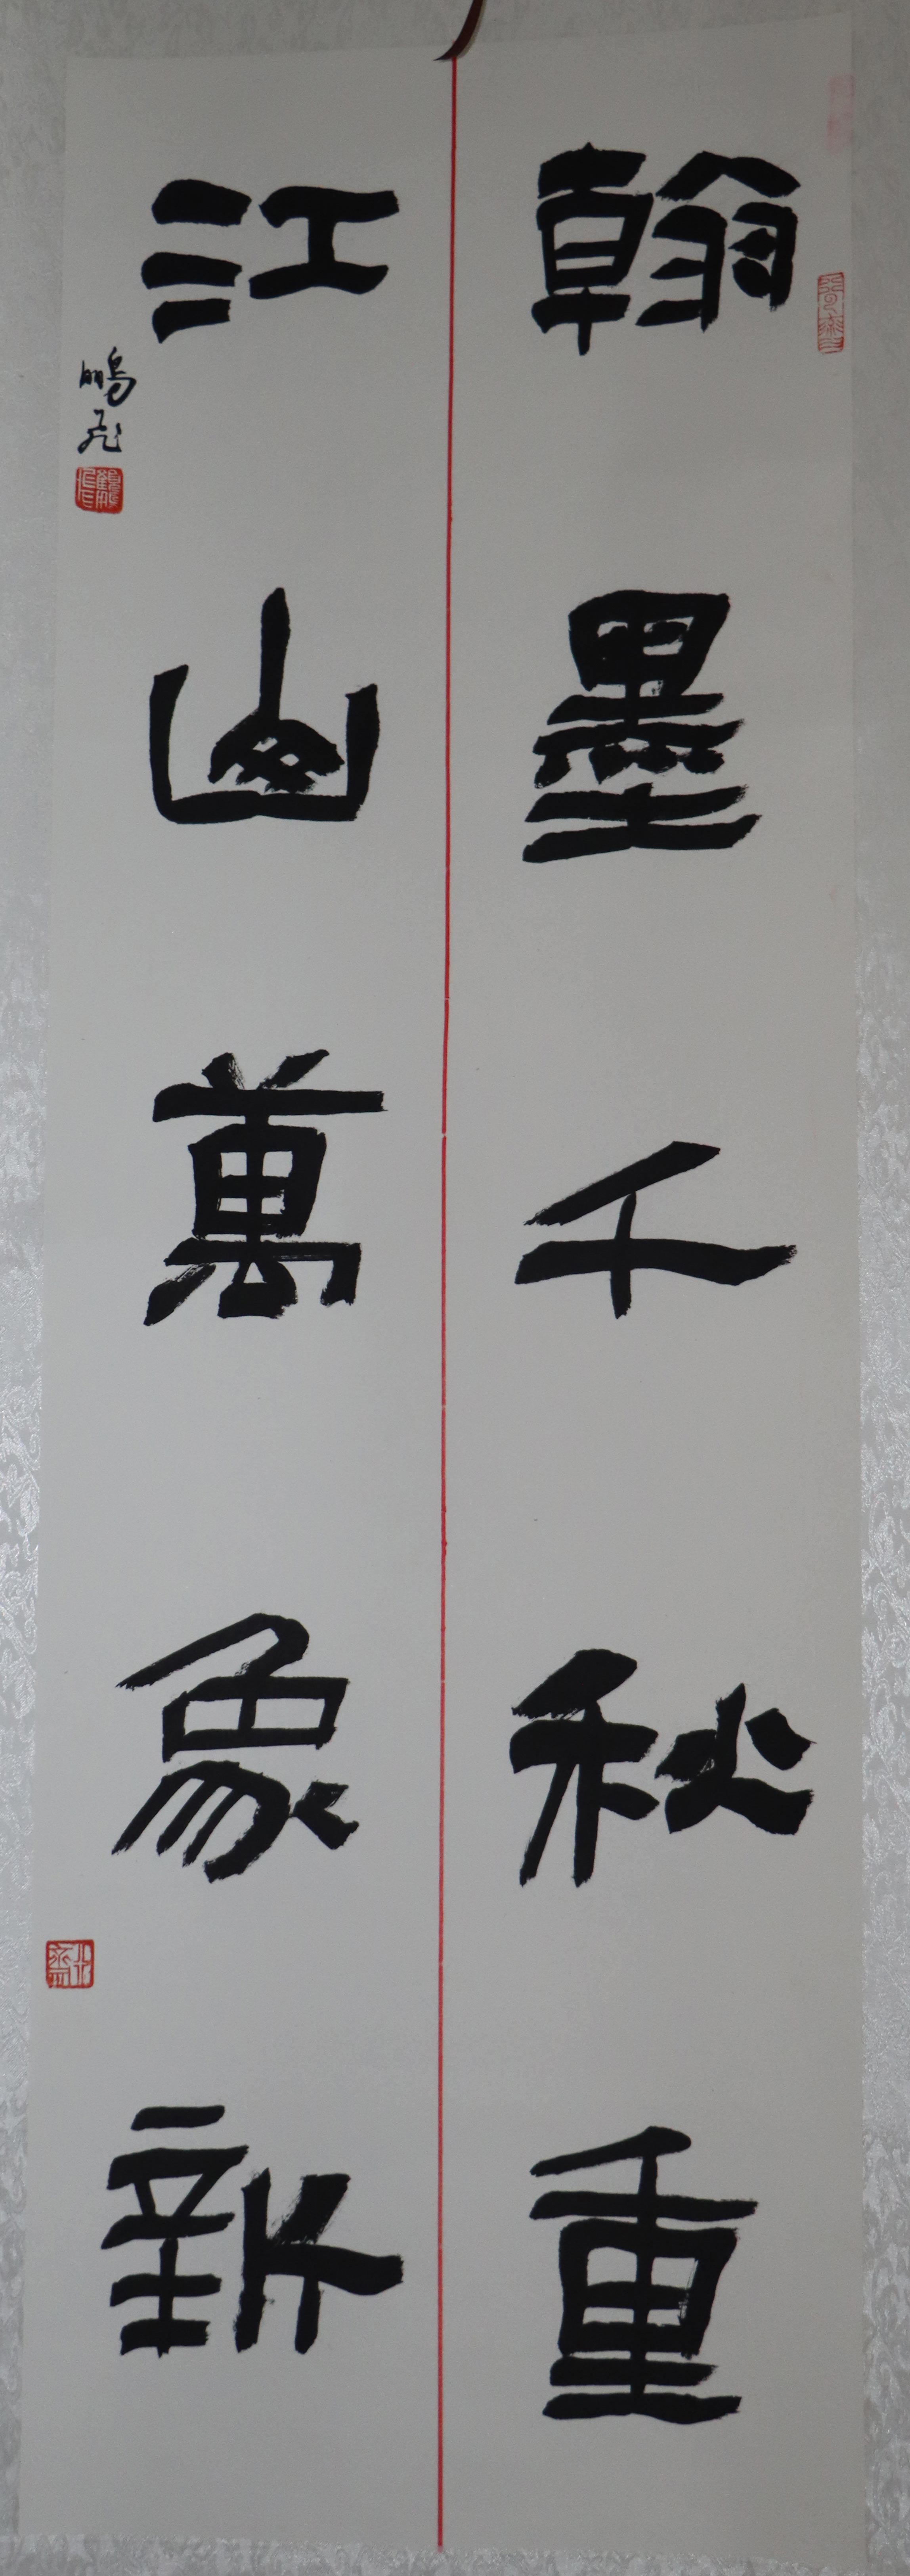 翰墨千秋重
江山萬象新
鵬飛